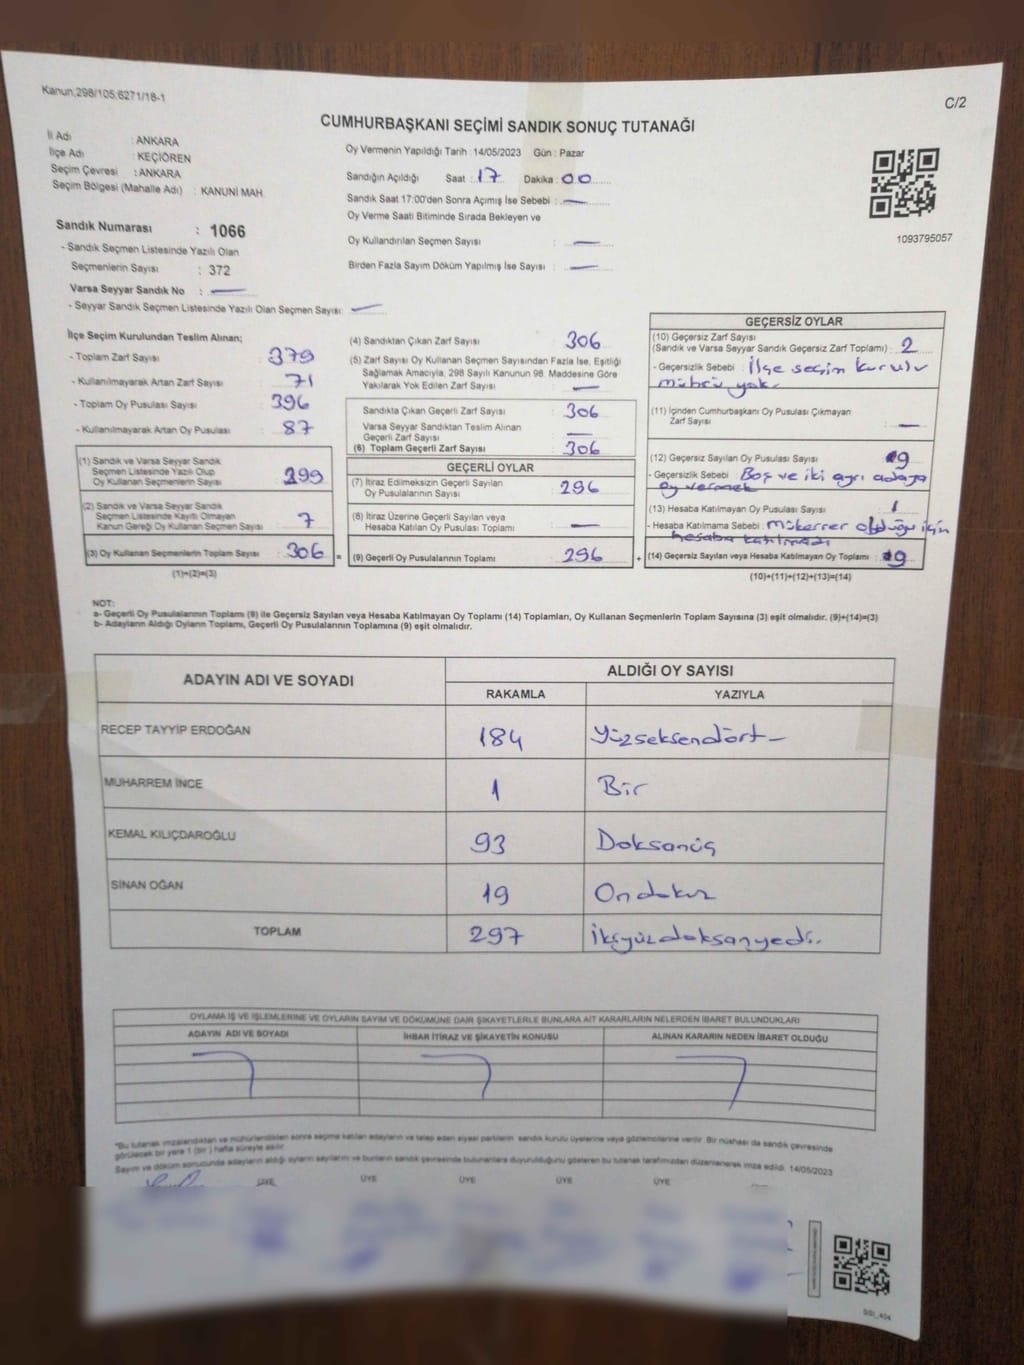 Kanun,298/105,6271/18-1
C/2
CUMHURBAŞKANI SEÇİMİ SANDIK SONUÇ TUTANAĞI
İl Adı : ANKARA
İlçe Adı : KEÇİÖREN
Seçim Çevresi : ANKARA
Seçim Bölgesi (Mahalle Adı) : KANUNİ MAH.
Oy Vermenin Yapıldığı Tarih : 14/05/2023 Gün : Pazar
Sandığın Açıldığı Saat : 17 Dakika : 00
Sandık Saat 17:00'den Sonra Açımış İse Sebebi : —
Oy Verme Saati Bitiminde Sırada Bekleyen ve
Oy Kullandırılan Seçmen Sayısı : —
Birden Fazla Sayım Döküm Yapılmış İse Sayısı : —
1093795057
Sandık Numarası : 1066
- Sandık Seçmen Listesinde Yazılı Olan
Seçmenlerin Sayısı : 372
Varsa Seyyar Sandık No : —
- Seyyar Sandık Seçmen Listesinde Yazılı Olan Seçmen Sayısı: —
İlçe Seçim Kurulundan Teslim Alınan;
- Toplam Zarf Sayısı : 379
- Kullanılmayarak Artan Zarf Sayısı : 71
- Toplam Oy Pusulası Sayısı : 396
- Kullanılmayarak Artan Oy Pusulası : 87
(1) Sandık ve Varsa Seyyar Sandık
Seçmen Listesinde Yazılı Olup
Oy Kullanan Seçmenlerin Sayısı : 299
(2) Sandık ve Varsa Seyyar Sandık
Seçmen Listesinde Kayıtlı Olmayan
Kanun Gereği Oy Kullanan Seçmen Sayısı : 7
(3) Oy Kullanan Seçmenlerin Toplam Sayısı : 306 =
(1)+(2)=(3)
(4) Sandıktan Çıkan Zarf Sayısı : 306
(5) Zarf Sayısı Oy Kullanan Seçmen Sayısından Fazla İse, Eşitliği
Sağlamak Amacıyla, 298 Sayılı Kanunun 98. Maddesine Göre
Yakılarak Yok Edilen Zarf Sayısı : —
Sandıkta Çıkan Geçerli Zarf Sayısı : 306
Varsa Seyyar Sandıktan Teslim Alınan
Geçerli Zarf Sayısı : —
(6) Toplam Geçerli Zarf Sayısı : 306
GEÇERLİ OYLAR
(7) İtiraz Edilmeksizin Geçerli Sayılan
Oy Pusulalarının Sayısı : 296
(8) İtiraz Üzerine Geçerli Sayılan veya
Hesaba Katılan Oy Pusulası Toplamı : —
(9) Geçerli Oy Pusulalarının Toplamı : 296 +
GEÇERSİZ OYLAR
(10) Geçersiz Zarf Sayısı
(Sandık ve Varsa Seyyar Sandık Geçersiz Zarf Toplamı) : 2
- Geçersizlik Sebebi : İlçe seçim kurulu
mührü yok.
(11) İçinden Cumhurbaşkanı Oy Pusulası Çıkmayan
Zarf Sayısı : —
(12) Geçersiz Sayılan Oy Pusulası Sayısı : 9
- Geçersizlik Sebebi : Boş ve iki ayrı adaya
oy vermek
(13) Hesaba Katılmayan Oy Pusulası Sayısı : 1
- Hesaba Katılmama Sebebi : mükerrer olduğu için
hesaba katılmadı
(14) Geçersiz Sayılan veya Hesaba Katılmayan Oy Toplamı : 9
(10)+(11)+(12)+(13)=(14)
NOT:
a- Geçerli Oy Pusulalarının Toplamı (9) ile Geçersiz Sayılan veya Hesaba Katılmayan Oy Toplamı (14) Toplamları, Oy Kullanan Seçmenlerin Toplam Sayısına (3) eşit olmalıdır. (9)+(14)=(3)
b- Adayların Aldığı Oyların Toplamı, Geçerli Oy Pusulalarının Toplamına (9) eşit olmalıdır.
ADAYIN ADI VE SOYADI
ALDIĞI OY SAYISI
RAKAMLA YAZIYLA
RECEP TAYYİP ERDOĞAN 184 Yüzseksendört—
MUHARREM İNCE 1 Bir
KEMAL KILIÇDAROĞLU 93 Doksanüç
SİNAN OĞAN 19 Ondokuz
TOPLAM 297 İkiyüzdoksanyedi.
OYLAMA İŞ VE İŞLEMLERİNE VE OYLARIN SAYIM VE DÖKÜMÜNE DAİR ŞİKAYETLERLE BUNLARA AİT KARARLARIN NELERDEN İBARET BULUNDUKLARI
ADAYIN ADI VE SOYADI İHBAR İTİRAZ VE ŞİKAYETİN KONUSU ALINAN KARARIN NEDEN İBARET OLDUĞU
"Bu tutanak imzalandıktan ve mühürlendikten sonra seçime katılan adayların ve talep eden siyasi partilerin sandık kurulu üyelerine veya gözlemcilerine verilir. Bir nüshası da sandık çevresinde
görülecek bir yere 1 (bir) hafta süreyle asılır.
Sayım ve döküm sonucunda adayların aldığı oyların sayılarını ve bunların sandık çevresinde bulunanlara duyurulduğunu gösteren bu tutanak tarafımızdan düzenlenerek imza edildi. 14/05/2023
ÜYE ÜYE ÜYE ÜYE ÜYE